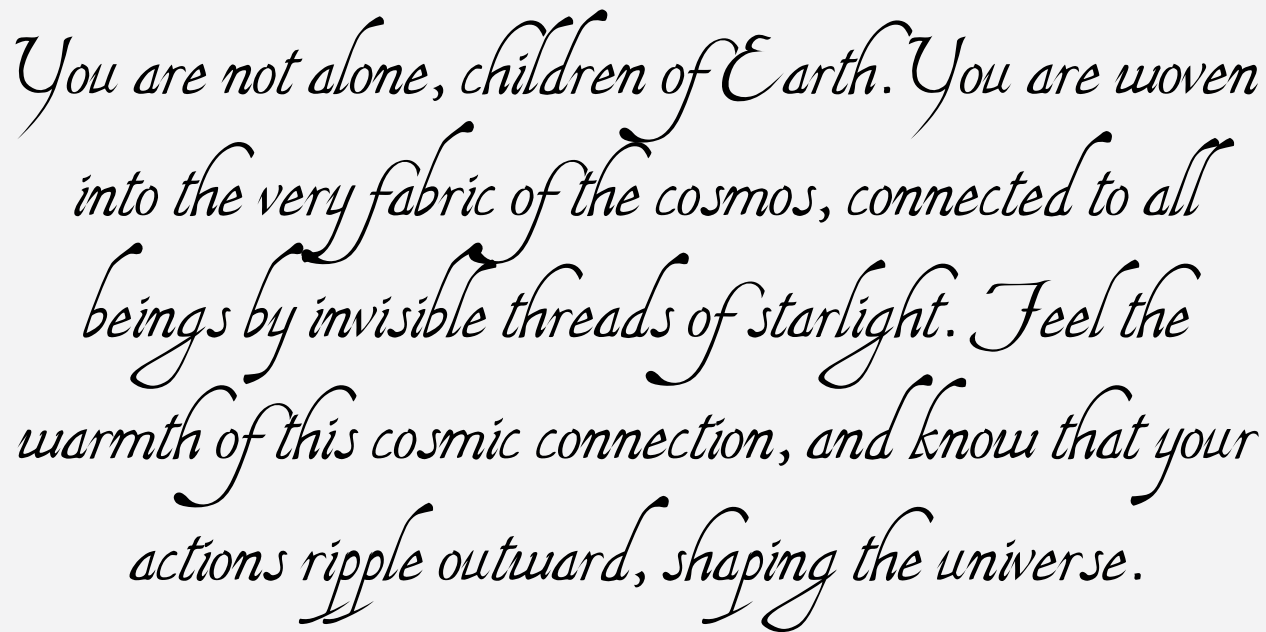 You are not alone, children of Earth. You are woven
into the very fabric of the cosmos, connected to all
beings by invisible threads of starlight. Feel the
warmth of this cosmic connection, and know that your
actions ripple outward, shaping the universe.